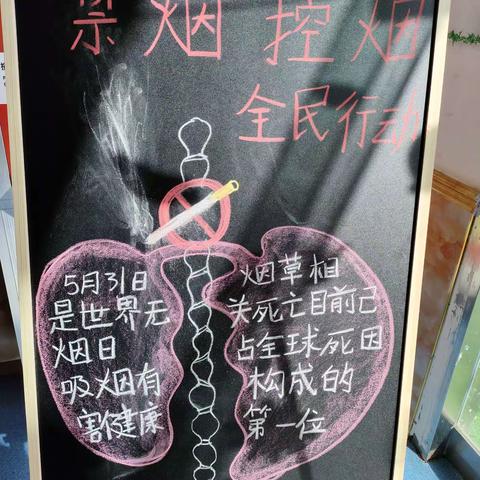 禁烟控烟
全民行动
5月31日
是世界无
烟日
吸烟有
害健康
烟草相
关死亡目前已
占全球死因
构成的
第一位